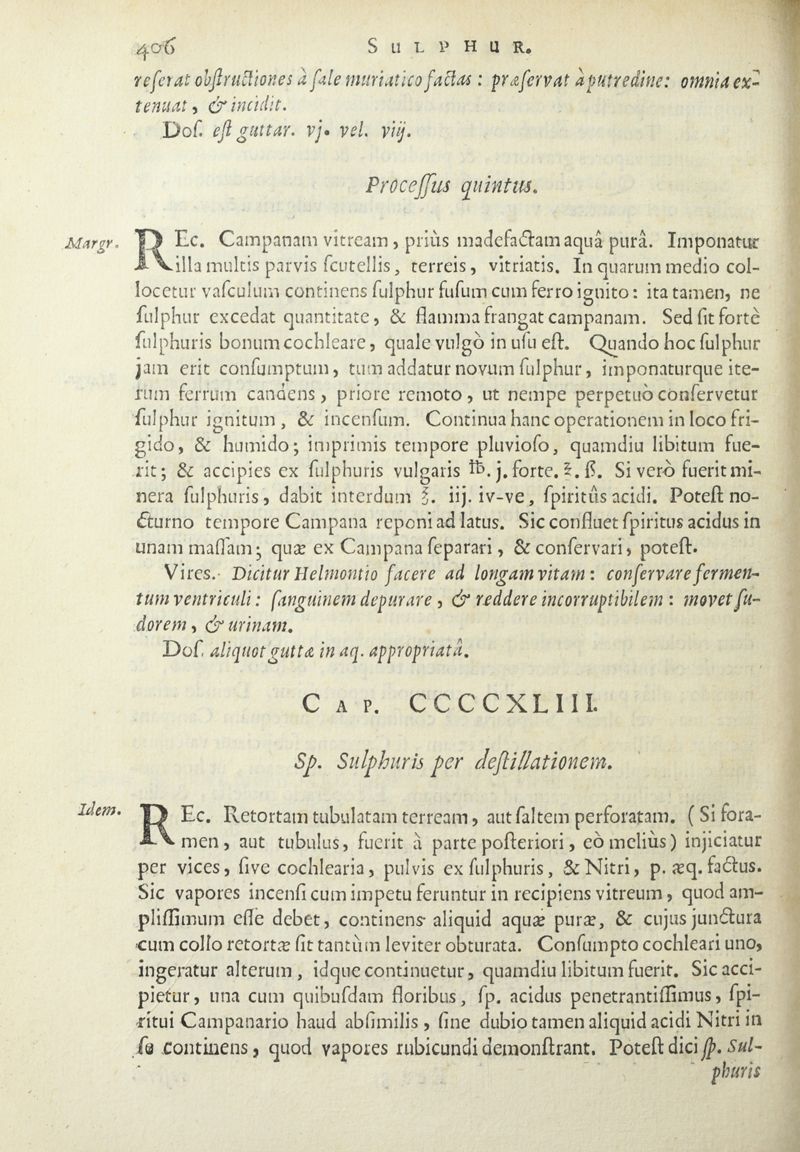 406 SULPHUR.
reſerat obſtructiones à ſale muriatico factas : præſervat à putredine: omnia ex-
tenuat, & incidit.
Doſ. eſt guttar. vj. vel. viij.
Proceſſus quintus.
Margr. REc. Campanam vitream, priùs madefactam aquâ purâ. Imponatur
illa multis parvis ſcutellis, terreis, vitriatis. In quarum medio col-
locetur vaſculum continens ſulphur fuſum cum ferro ignito: ita tamen, ne
ſulphur excedat quantitate, & flamma frangat campanam. Sed ſit fortè
ſulphuris bonum cochleare, quale vulgò in uſu eſt. Quando hoc ſulphur
jam erit conſumptum, tum addatur novum ſulphur, imponaturque ite-
rum ferrum candens, priore remoto, ut nempe perpetuò conſervetur
ſulphur ignitum, & incenſum. Continua hanc operationem in loco fri-
gido, & humido; imprimis tempore pluvioſo, quamdiu libitum fue-
rit; & accipies ex ſulphuris vulgaris ℔. j. forte. ℥. ß. Si verò fuerit mi-
nera ſulphuris, dabit interdum ℥. iij. iv-ve, ſpiritûs acidi. Poteſt no-
cturno tempore Campana reponi ad latus. Sic confluet ſpiritus acidus in
unam maſſam; quæ ex Campana ſeparari, & conſervari, poteſt.
Vires. Dicitur Helmontio facere ad longam vitam: conſervare fermen-
tum ventriculi: ſanguinem depurare, & reddere incorruptibilem: movet ſu-
dorem, & urinam.
Doſ. aliquot guttæ in aq. appropriatâ.
CAP. CCCCXLIII.
Sp. Sulphuris per deſtillationem.
Idem. REc. Retortam tubulatam terream, aut ſaltem perforatam. (Si fora-
men, aut tubulus, fuerit à parte poſteriori, eò meliùs) injiciatur
per vices, ſive cochlearia, pulvis ex ſulphuris, & Nitri, p. æq. factus.
Sic vapores incenſi cum impetu feruntur in recipiens vitreum, quod am-
pliſſimum eſſe debet, continens aliquid aquæ puræ, & cujus junctura
cum collo retortæ ſit tantùm leviter obturata. Conſumpto cochleari uno,
ingeratur alterum, idque continuetur, quamdiu libitum fuerit. Sic acci-
pietur, una cum quibuſdam floribus, ſp. acidus penetrantiſſimus, ſpi-
ritui Campanario haud abſimilis, ſine dubio tamen aliquid acidi Nitri in
ſe continens, quod vapores rubicundi demonſtrant. Poteſt dici ſp. Sul-
phuris